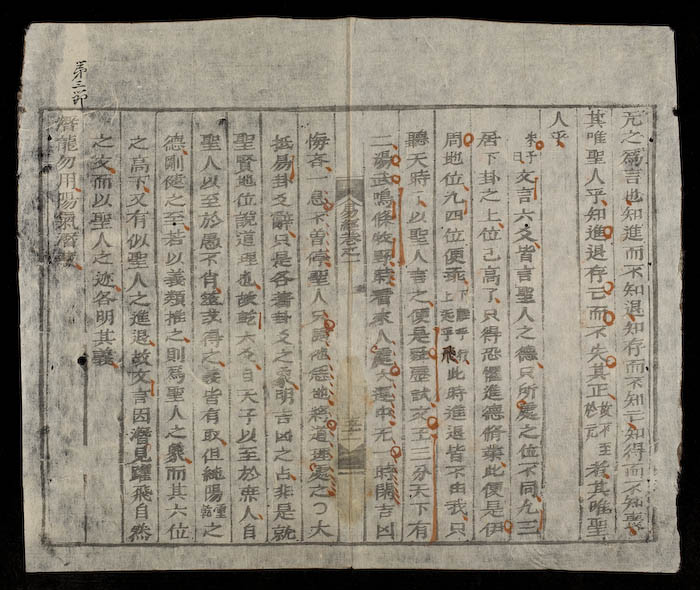 亢之爲言也知進而不知退知存而不知亡知得而不知喪
其唯聖人乎知進退存亡而不失其正 故不至於亢 者其唯聖
人乎
朱子曰文言六爻皆言聖人之德只所處之位不同九三
居下卦之上位已高了只得恐懼進德脩業此便是伊
周地位九四位便乖 下離乎 上近乎飛 此時進退皆不由我只
聽天時了以聖人言之便是 歷試文王三分天下有
二湯武鳴條牧野時看來人處大運中无 時閒吉凶
易經卷之一
悔吝 息不曾停聖人只 他 將道理處之〇大
抵易卦爻辭只是各著卦爻之象明吉凶之占非是就
聖賢地位說道理也故乾六爻自天子以至於庶人自
聖人以至於愚不肖 得之 皆有取但純陽 之
德剛健之至若以義類推之則爲聖人之象而其六位
之高下又有似聖人之進退故文言因潛見躍飛自然
之文而以聖人之迹各明其義
潛龍勿用陽氣潛藏
第三節